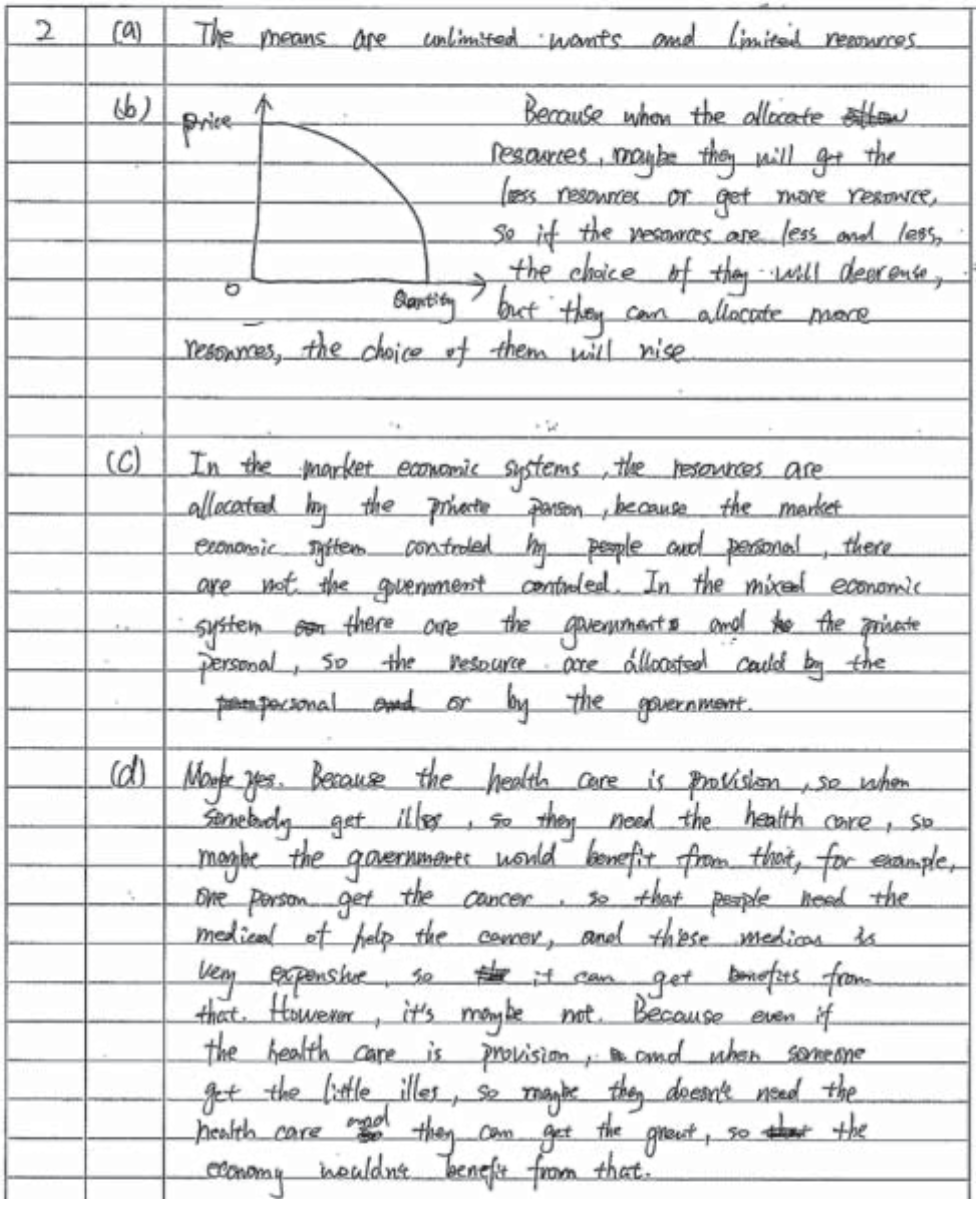 2 (a) The means are unlimited wants and limited resources
(b) price Because when the allocate
resources, maybe they will get the
less resources or get more resource,
so if the resources are less and less,
the choice of they will decrease,
0 Quantity but they can allocate more
resources, the choice of them will rise
(C) In the market economic systems, the resources are
allocated by the private person, because the market
economic system controled by people and personal, there
are not the government controled. In the mixed economic
system there are the governments and the private
personal, so the resource are allocated could by the
personal or by the government.
(d) Maybe yes. Because the health care is provision, so when
somebody get illes, so they need the health care, so
maybe the governments would benefit from that, for example,
one person get the cancer. so that people need the
medical of help the cancer, and these medical is
very expensive, so it can get benefits from
that. However, it's maybe not. Because even if
the health care is provision, and when someone
get the little illes, so maybe they doesn't need the
health care and they can get the , so the
economy wouldn't benefit from that.